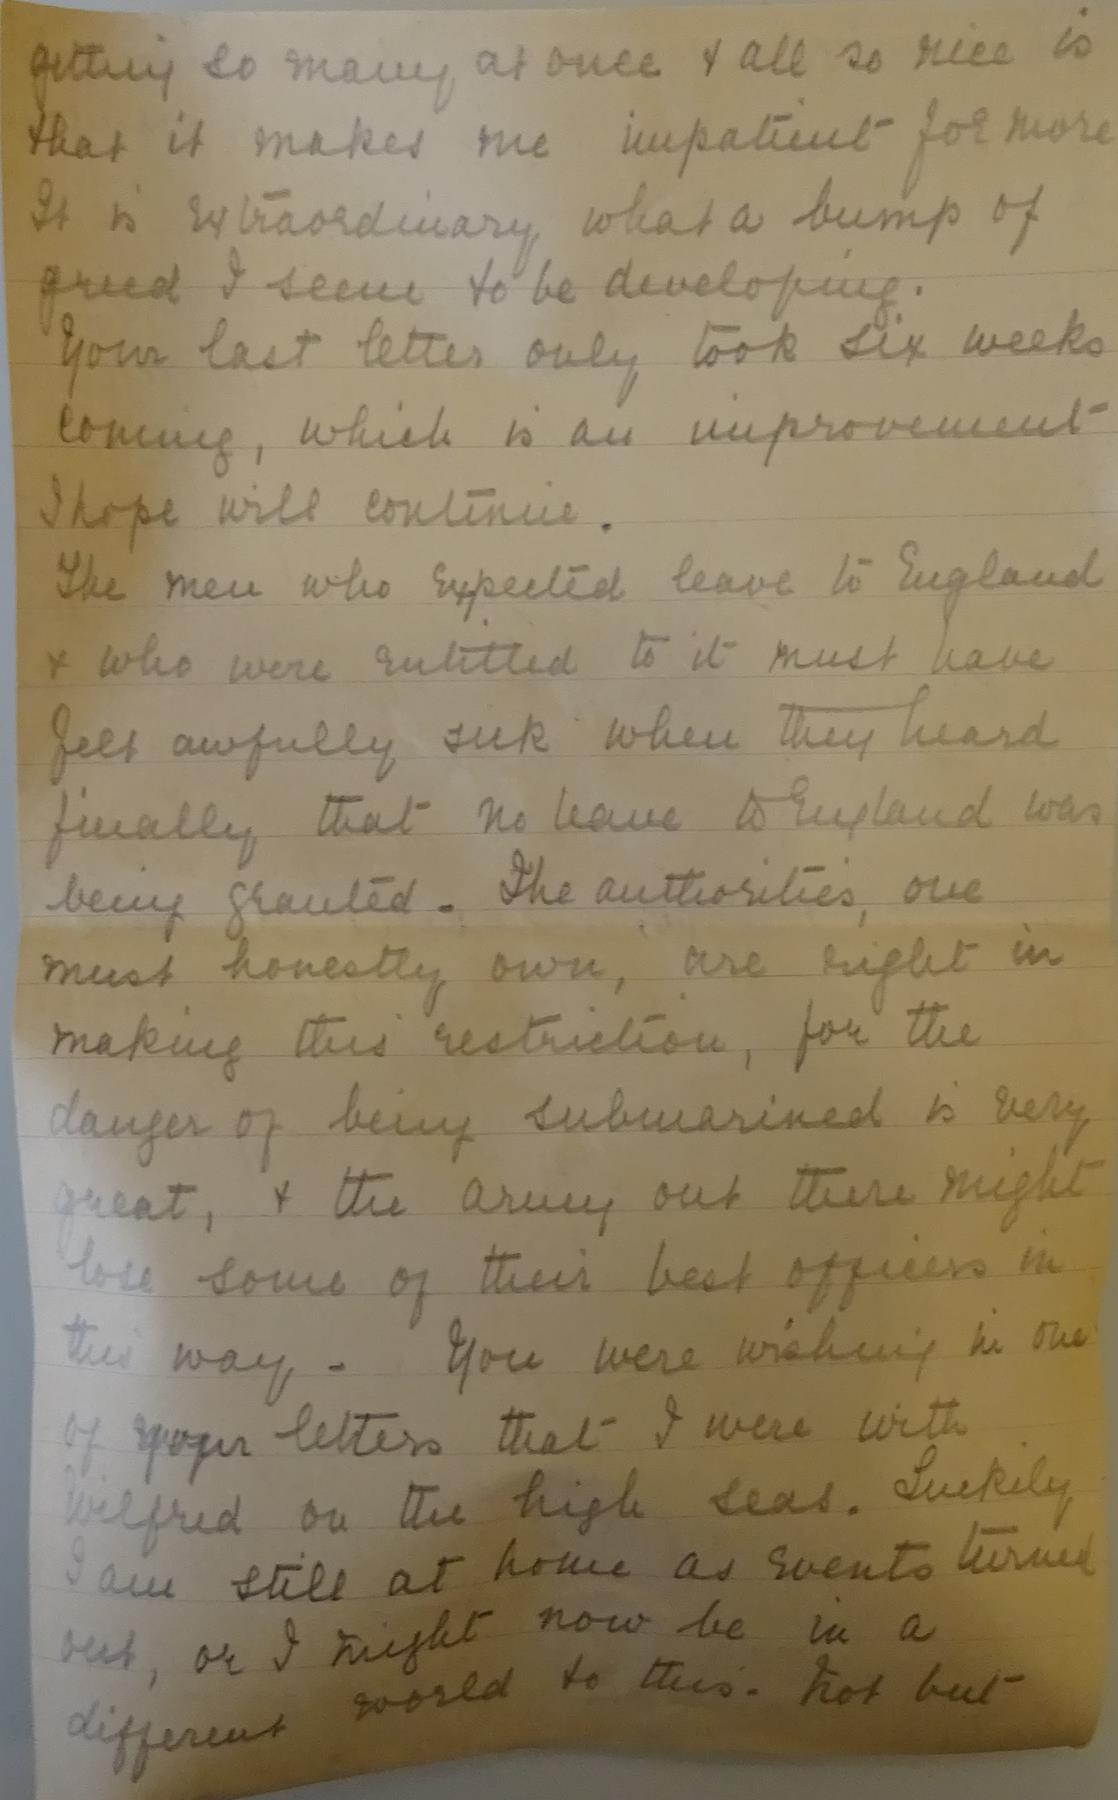 getting so many at once & all so nice is
that it makes me impatient for more
It is extraordinary what a bump of
greed I seem to be developing.
Your last letter only took six weeks
coming, which is an improvement
I hope will continue.
The men who expected leave to England
& who were entitled to it must have
felt awfully sick when they heard
finally that no leave to England was
being granted. The authorities, one
must honestly own, are right in
making this restriction, for the
danger of being submarined is very
great, & the army out there might
lose some of their best officers in
this way. You were wishing in one
of your letters that I were with
Wilfred on the high seas. Luckily
I am still at home as events turned
out, or I might now be in a
different world to this. Not but